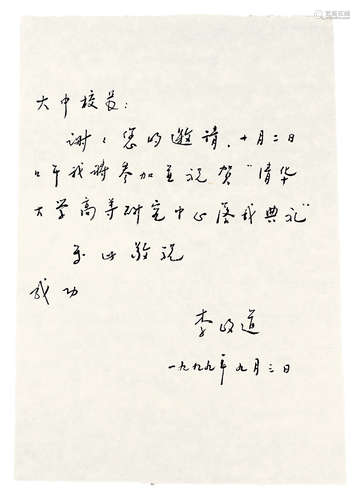 大中校长：
谢谢您的邀请，十月二日
下午我将参加並祝贺“清华
大学高等研究中心落成典礼”
此敬祝
成功
李政道
一九九九年九月三日